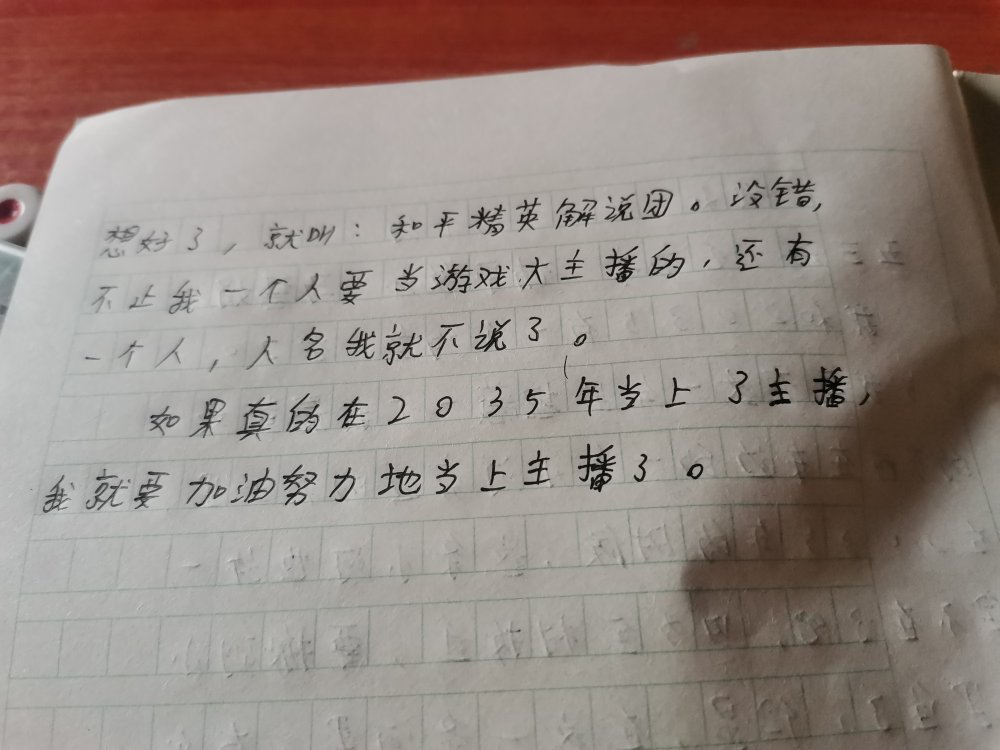 想好了，就叫：和平精英解说团。没错，
不止我一个人要当游戏大主播的，还有
一个人，人名我就不说了。
如果真的在2035年当上了主播，
我就要加油努力地当上主播了。